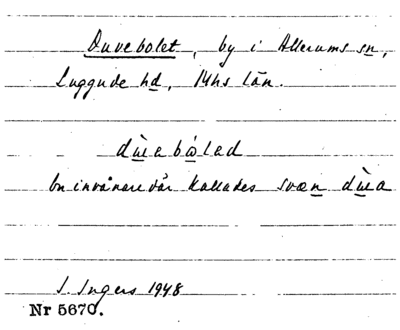 Duvebolet, by i Allerums sn,
Luggude hd, Mhs län.
dùabòlad
En invånare där kallades svæn dùa
I. Ingers 1948
Nr 5670.